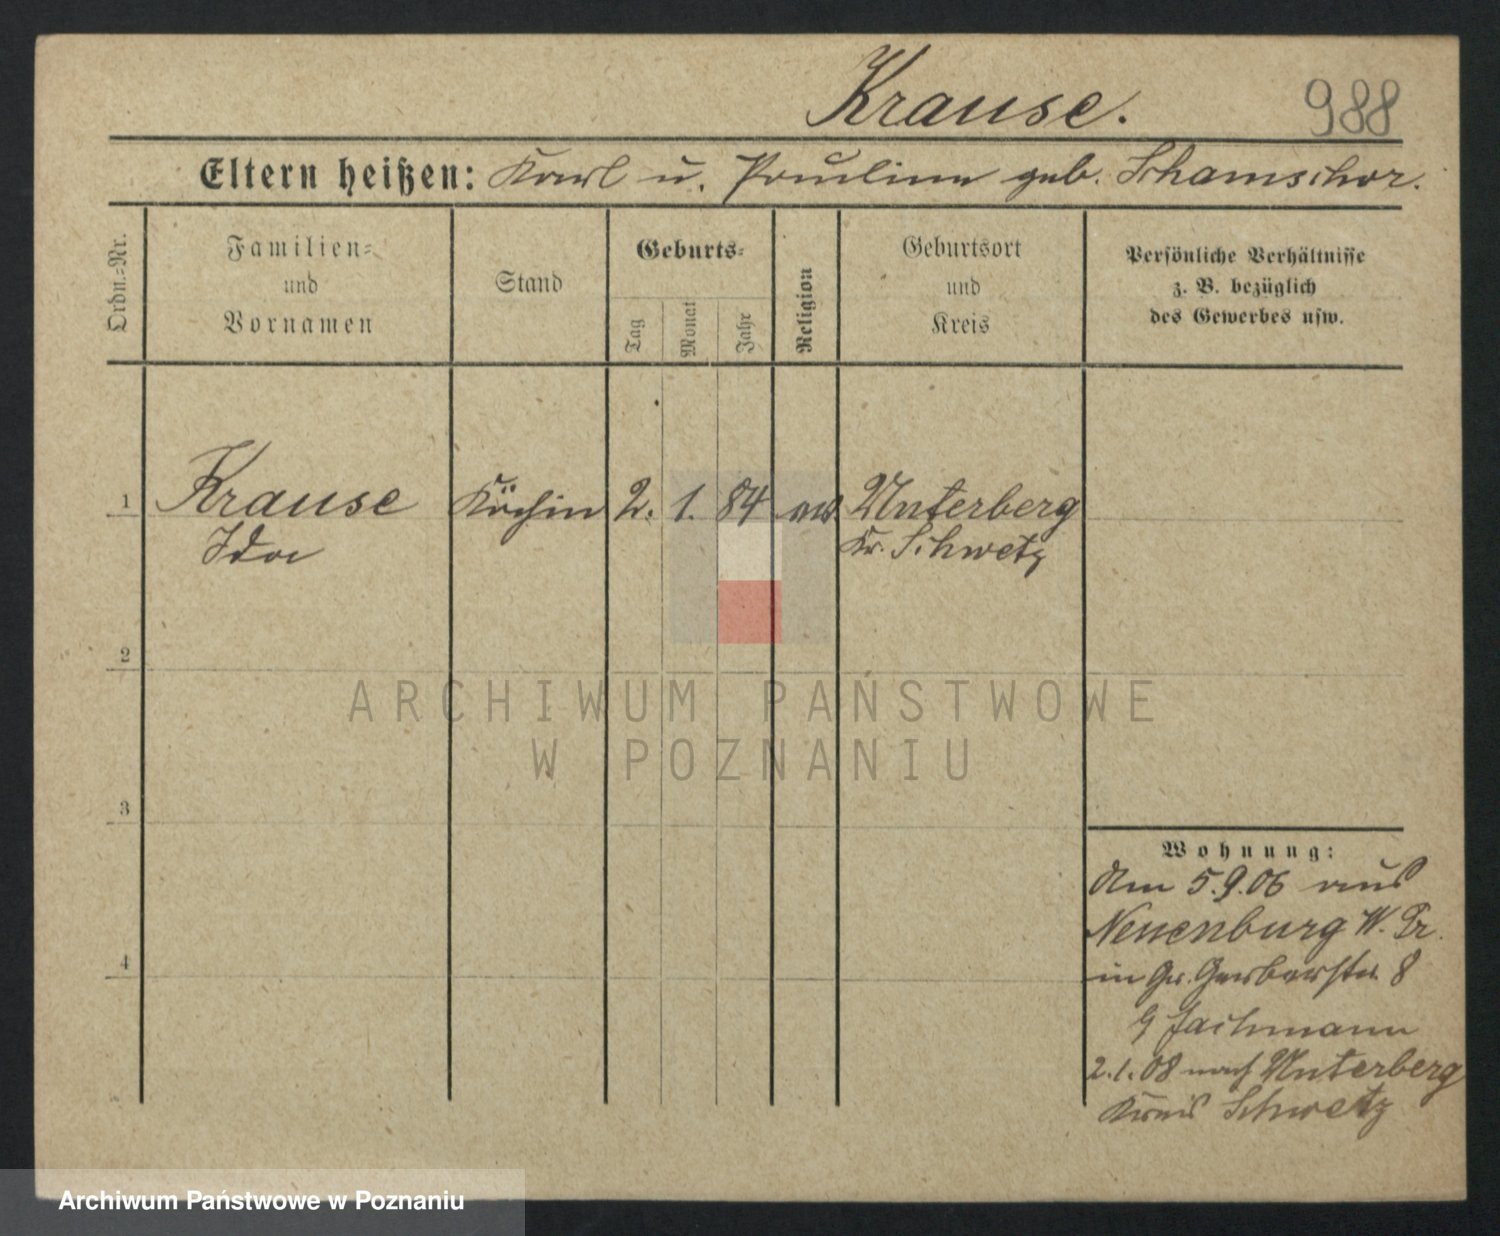 Krause.
988
Eltern heißen: Karl u. Pauline geb. Schamschor.
Ordn.=Nr.
Familien=
und
Vornamen
Stand
Geburts=
Tag
Monat
Jahr
Religion
Geburtsort
und
Kreis
Persönliche Verhältnisse
z. B. bezüglich
des Gewerbes usw.
1 Krause Köchin 2. 1. 84 ev. Unterberg
Ida Kr. Schwetz
2
3
4
Wohnung:
Am 5.9.06 aus
Neuenburg W. Pr.
in Gr. Gerberstr. 8
Jachmann
2.1.08 nach Unterberg
Kreis Schwetz
ARCHIWUM PAŃSTWOWE
W POZNANIU
Archiwum Państwowe w Poznaniu